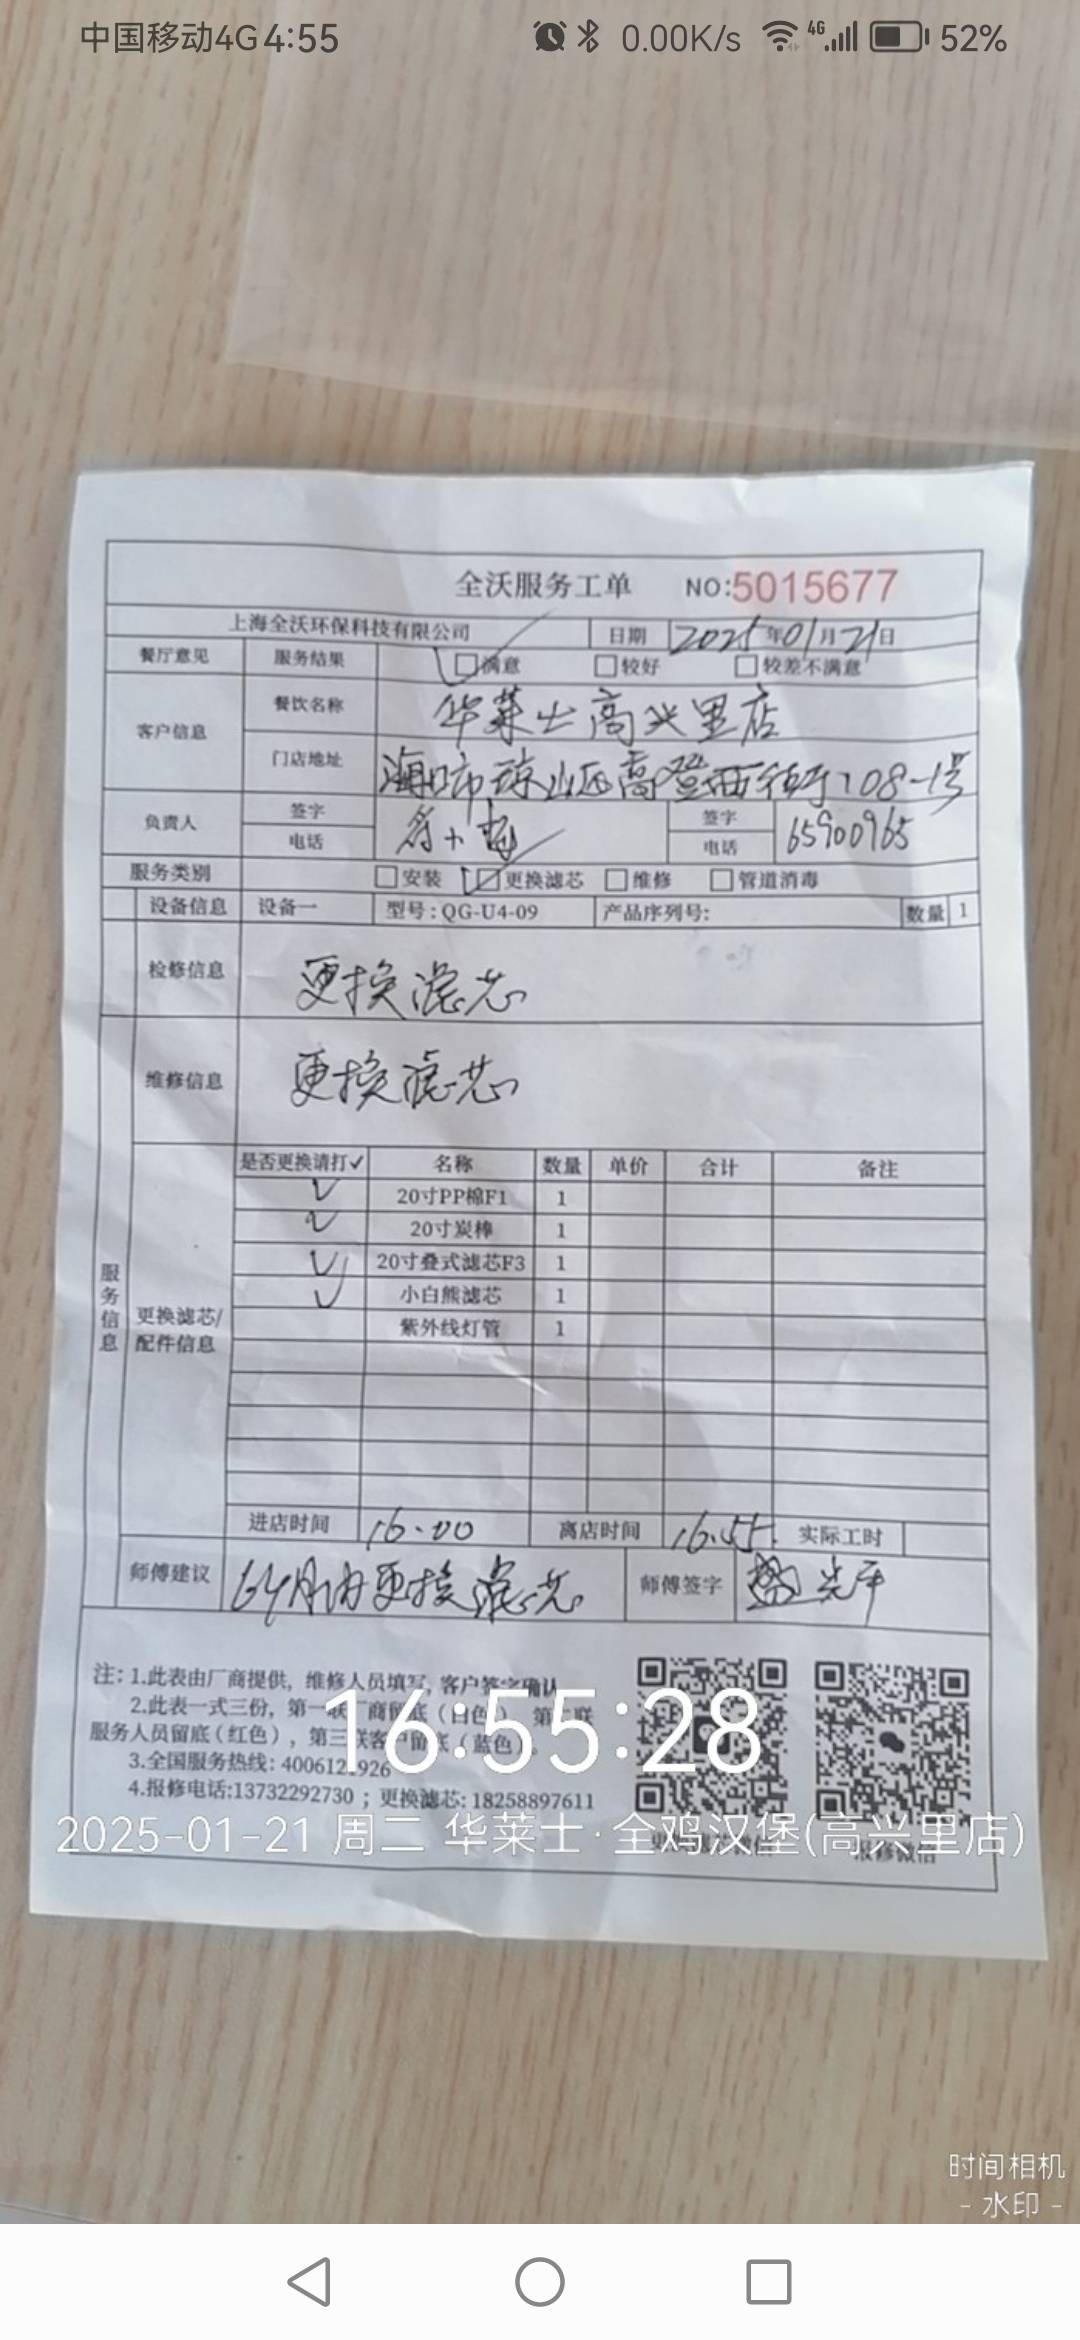 中国移动4G 4:55 0.00K/s 4G 52%
全沃服务工单 NO:5015677
上海全沃环保科技有限公司 日期 2025年01月21日
餐厅意见 服务结果 满意 较好 较差不满意
客户信息 餐饮名称 华莱士高兴里店
门店地址 海口市琼山区高登西街于108-1号
负责人 签字 签字
电话 电话 65900965
服务类别 安装 更换滤芯 维修 管道消毒
设备信息 设备一 型号:QG-U4-09 产品序列号: 数量 1
检修信息 更换滤芯
维修信息 更换滤芯
服务信息
更换滤芯/配件信息
是否更换请打✓ 名称 数量 单价 合计 备注
✓ 20寸PP棉F1 1
✓ 20寸炭棒 1
✓ 20寸叠式滤芯F3 1
✓ 小白熊滤芯 1
紫外线灯管 1
进店时间 16.00 离店时间 16.55 实际工时
师傅建议 更换滤芯 师傅签字
注: 1.此表由厂商提供, 维修人员填写, 客户签字确认
2.此表一式三份, 第一联厂商留底(白色), 第二联
服务人员留底(红色), 第三联客户留底(蓝色)。
3.全国服务热线: 
4.报修电话:13732292730 ; 更换滤芯: 18258897611
报修微信
16:55:28
2025-01-21 周二 华莱士·全鸡汉堡(高兴里店)
时间相机
- 水印 -